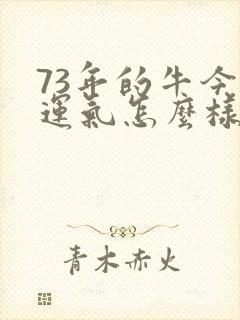 73年的牛今
運氣怎麼樣
青木赤火